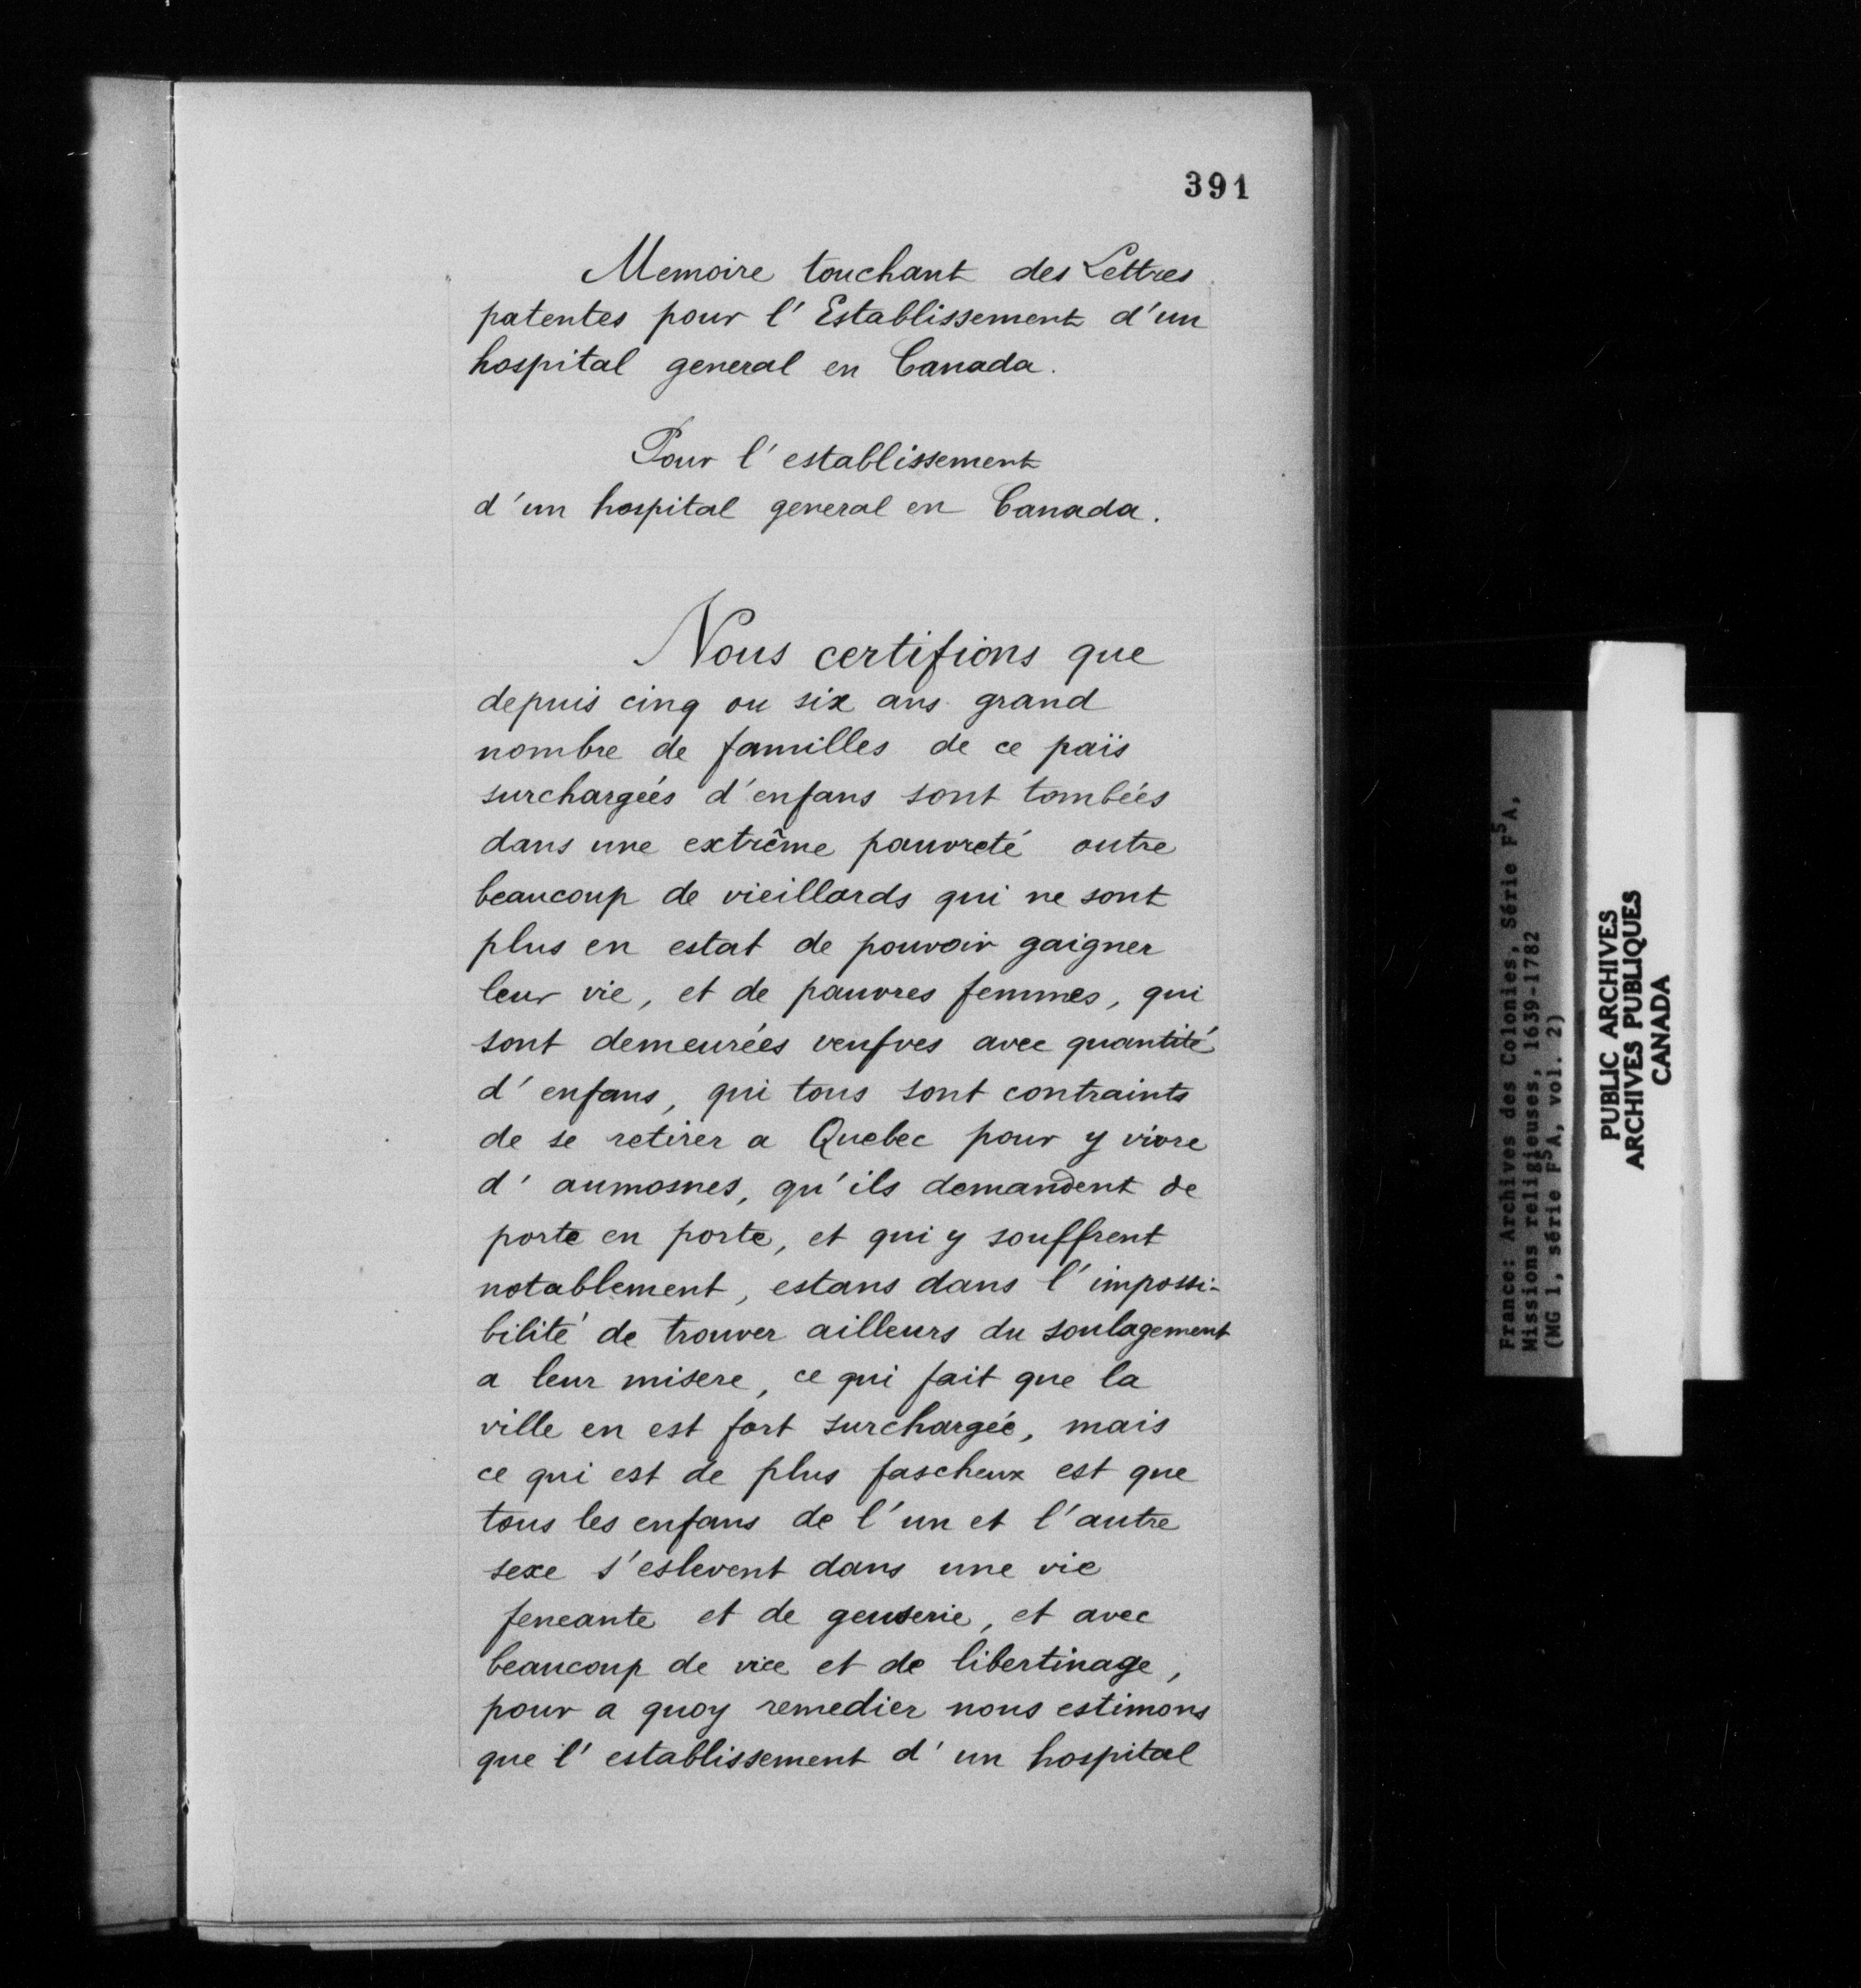 391
Memoire touchant des Lettres
patentes pour l'Establissement d'un
hospital general en Canada.
Pour l'establissement
d'un hospital general en Canada.
Nous certifions que
depuis cinq ou six ans grand
nombre de familles de ce païs
surchargeés d'enfans sont tombeés
dans une extrême pauvreté outre
beaucoup de vieillards qui ne sont
plus en estat de pouvoir gaigner
leur vie, et de pauvres femmes, qui
sont demeureés veufves avec quantité
d'enfans, qui tous sont contraints
de se retirer a Quebec pour y vivre
d'aumosnes, qu'ils demandent de
porte en porte, et qui y souffrent
notablement, estans dans l'impossi-
bilité de trouver ailleurs du soulagement
a leur misere, ce qui fait que la
ville en est fort surchargeé, mais
ce qui est de plus fascheux est que
tous les enfans de l'un et l'autre
sexe s'eslevent dans une vie
feneante et de geuserie, et avec
beaucoup de vice et de libertinage,
pour a quoy remedier nous estimons
que l'establissement d'un hospital
France: Archives des Colonies, Série F⁵A,
Missions religieuses, 1639-1782
(MG 1, série F⁵A, vol. 2)
PUBLIC ARCHIVES
ARCHIVES PUBLIQUES
CANADA